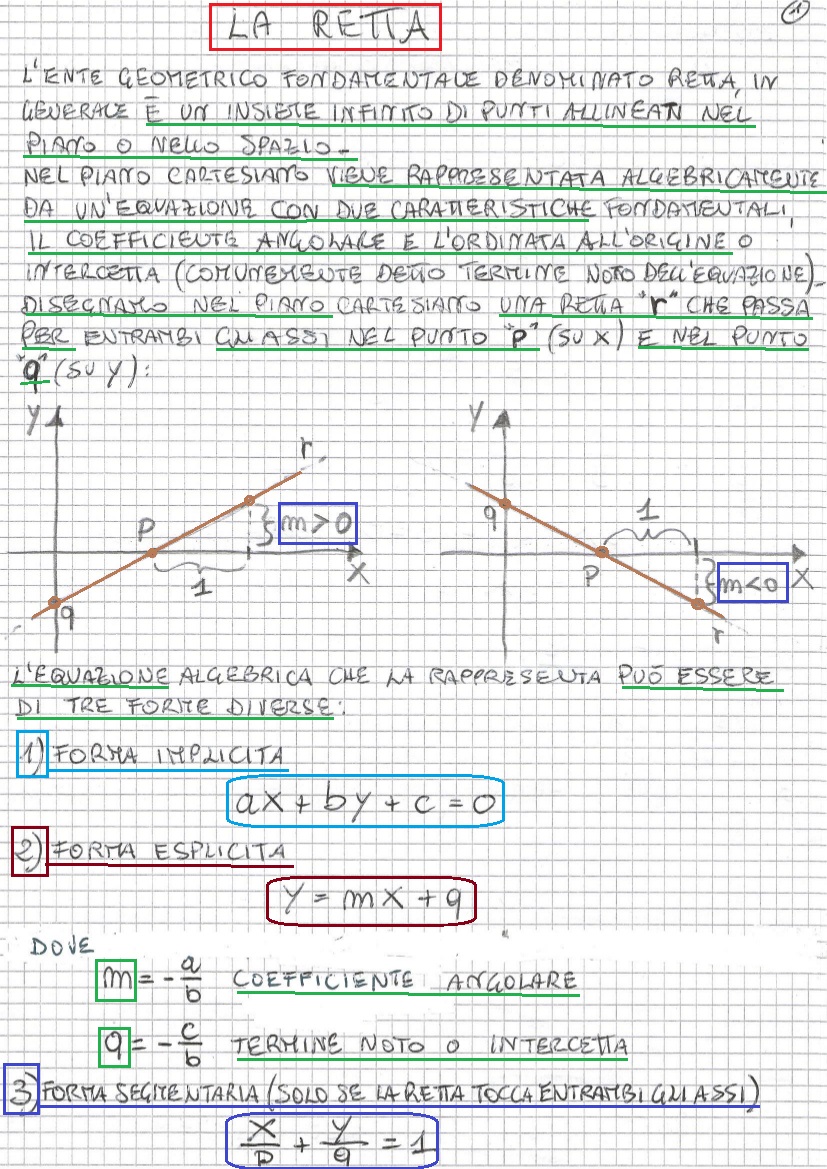 1
LA RETTA
L'ENTE GEOMETRICO FONDAMENTALE DENOMINATO RETTA, IN
GENERALE È UN INSIEME INFINITO DI PUNTI ALLINEATI NEL
PIANO O NELLO SPAZIO-
NEL PIANO CARTESIANO VIENE RAPPRESENTATA ALGEBRICAMENTE
DA UN'EQUAZIONE CON DUE CARATTERISTICHE FONDAMENTALI,
IL COEFFICIENTE ANGOLARE E L'ORDINATA ALL'ORIGINE O
INTERCETTA (COMUNEMENTE DETTO TERMINE NOTO DELL'EQUAZIONE)-
DISEGNAMO NEL PIANO CARTESIANO UNA RETTA "r" CHE PASSA
PER ENTRAMBI GLI ASSI NEL PUNTO "P" (SU X) E NEL PUNTO
"q" (SU Y):
Y r P m>0 1 X q
Y q 1 P m<0 X r
L'EQUAZIONE ALGEBRICA CHE LA RAPPRESENTA PUÒ ESSERE
DI TRE FORME DIVERSE:
1) FORMA IMPLICITA
ax + by + c = 0
2) FORMA ESPLICITA
Y = mX + q
DOVE
m = - a/b COEFFICIENTE ANGOLARE
q = - c/b TERMINE NOTO O INTERCETTA
3) FORMA SEGMENTARIA (SOLO SE LA RETTA TOCCA ENTRAMBI GLI ASSI)
X/P + Y/q = 1